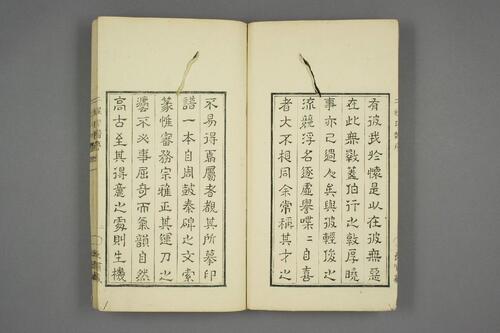 有彼我於懷是以在彼無惡
在此無斁蓋伯行之敦厚曉
事亦已過人矣與彼輕俊之
流競浮名逐虛譽喋〻自喜
者大不相同余常稱其才之
不易得焉屬者觀其所摹印
譜一本自周鼓秦碑之文索
篆惟審務宗雅正其運刀之
不必事屈奇而氣韻自然
高古至其得意之處則生機